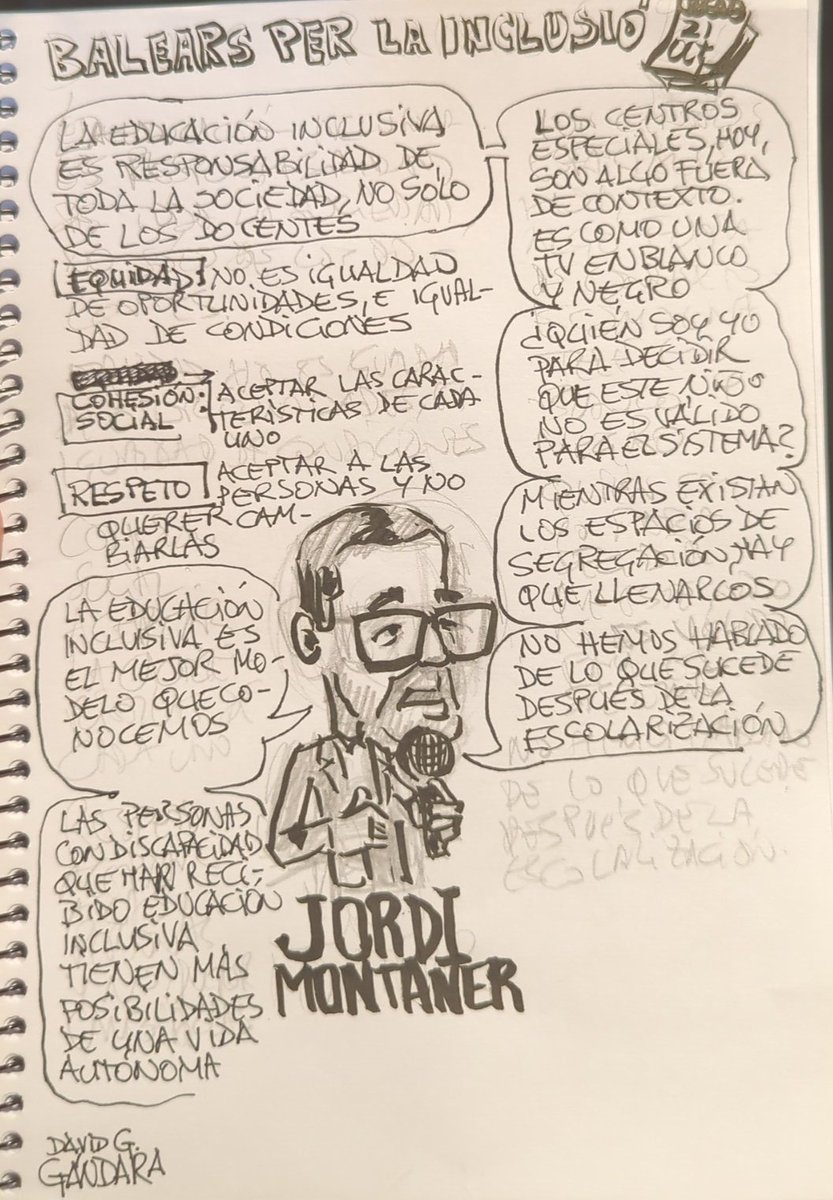 BALEARS PER LA INCLUSIÓ
21
OCT
LA EDUCACIÓN INCLUSIVA
ES RESPONSABILIDAD DE
TODA LA SOCIEDAD, NO SOLO
DE LOS DOCENTES
EQUIDAD: NO ES IGUALDAD
DE OPORTUNIDADES, E IGUAL-
DAD DE CONDICIONES
COHESIÓN: ACEPTAR LAS CARAC-
SOCIAL TERÍSTICAS DE CADA
UNO
RESPETO ACEPTAR A LAS
PERSONAS Y NO
QUERER CAM-
BIARLAS
LA EDUCACIÓN
INCLUSIVA ES
EL MEJOR MO-
DELO QUE CO-
NOCEMOS
LAS PERSONAS
CON DISCAPACIDAD
QUE HAN RECI-
BIDO EDUCACIÓN
INCLUSIVA
TIENEN MÁS
POSIBILIDADES
DE UNA VIDA
AUTÓNOMA
LOS CENTROS
ESPECIALES, HOY,
SON ALGO FUERA
DE CONTEXTO.
ES COMO UNA
TV EN BLANCO
Y NEGRO
¿QUIÉN SOY YO
PARA DECIDIR
QUE ESTE NIÑO
NO ES VÁLIDO
PARA EL SISTEMA?
MIENTRAS EXISTAN
LOS ESPACIOS DE
SEGREGACIÓN, HAY
QUE LLENARLOS
NO HEMOS HABLADO
DE LO QUE SUCEDE
DESPUÉS DE LA
ESCOLARIZACIÓN
DE LO QUE SUCEDE
DESPUÉS DE LA
ESCOLARIZACIÓN.
JORDI
MONTANER
DAVID G.
GÁNDARA